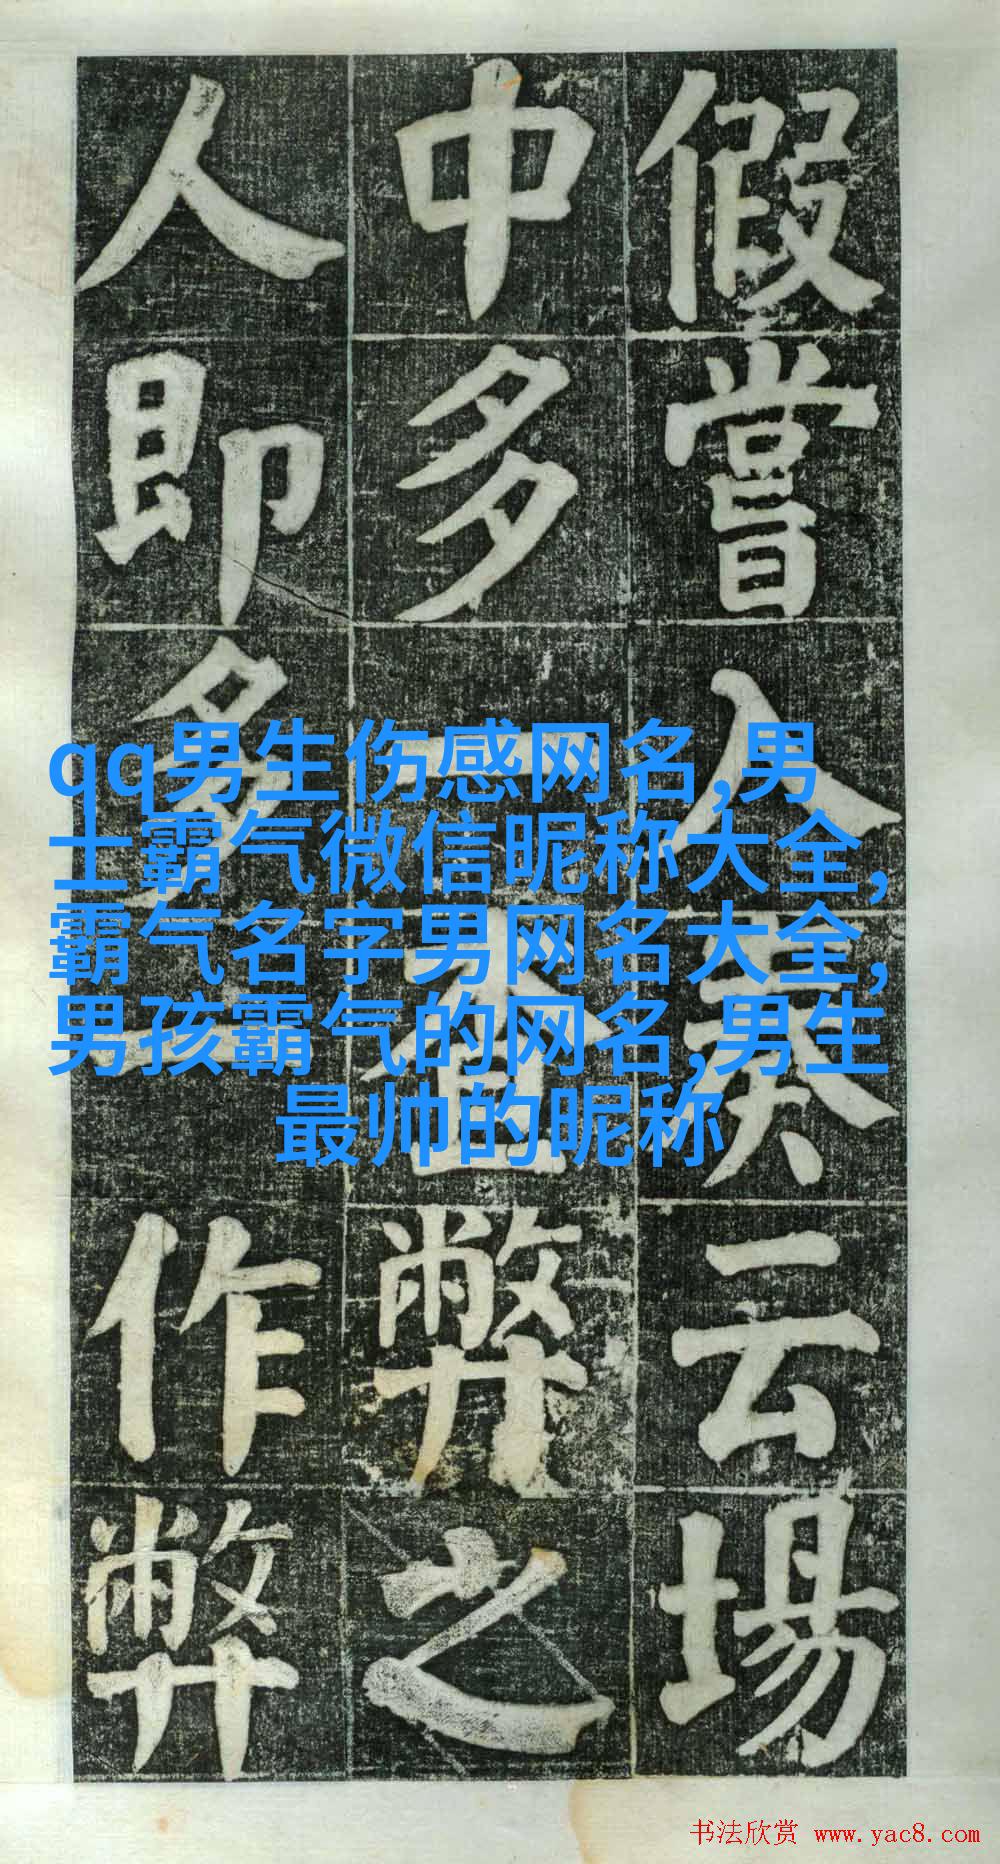 假嘗入奏云場
中多一查弊之
人即多一作弊
qq男生伤感网名,男
士霸气微信昵称大全,
霸气名字男网名大全,
男孩霸气的网名,男生
最帅的昵称
书法欣赏 www.yac8.com